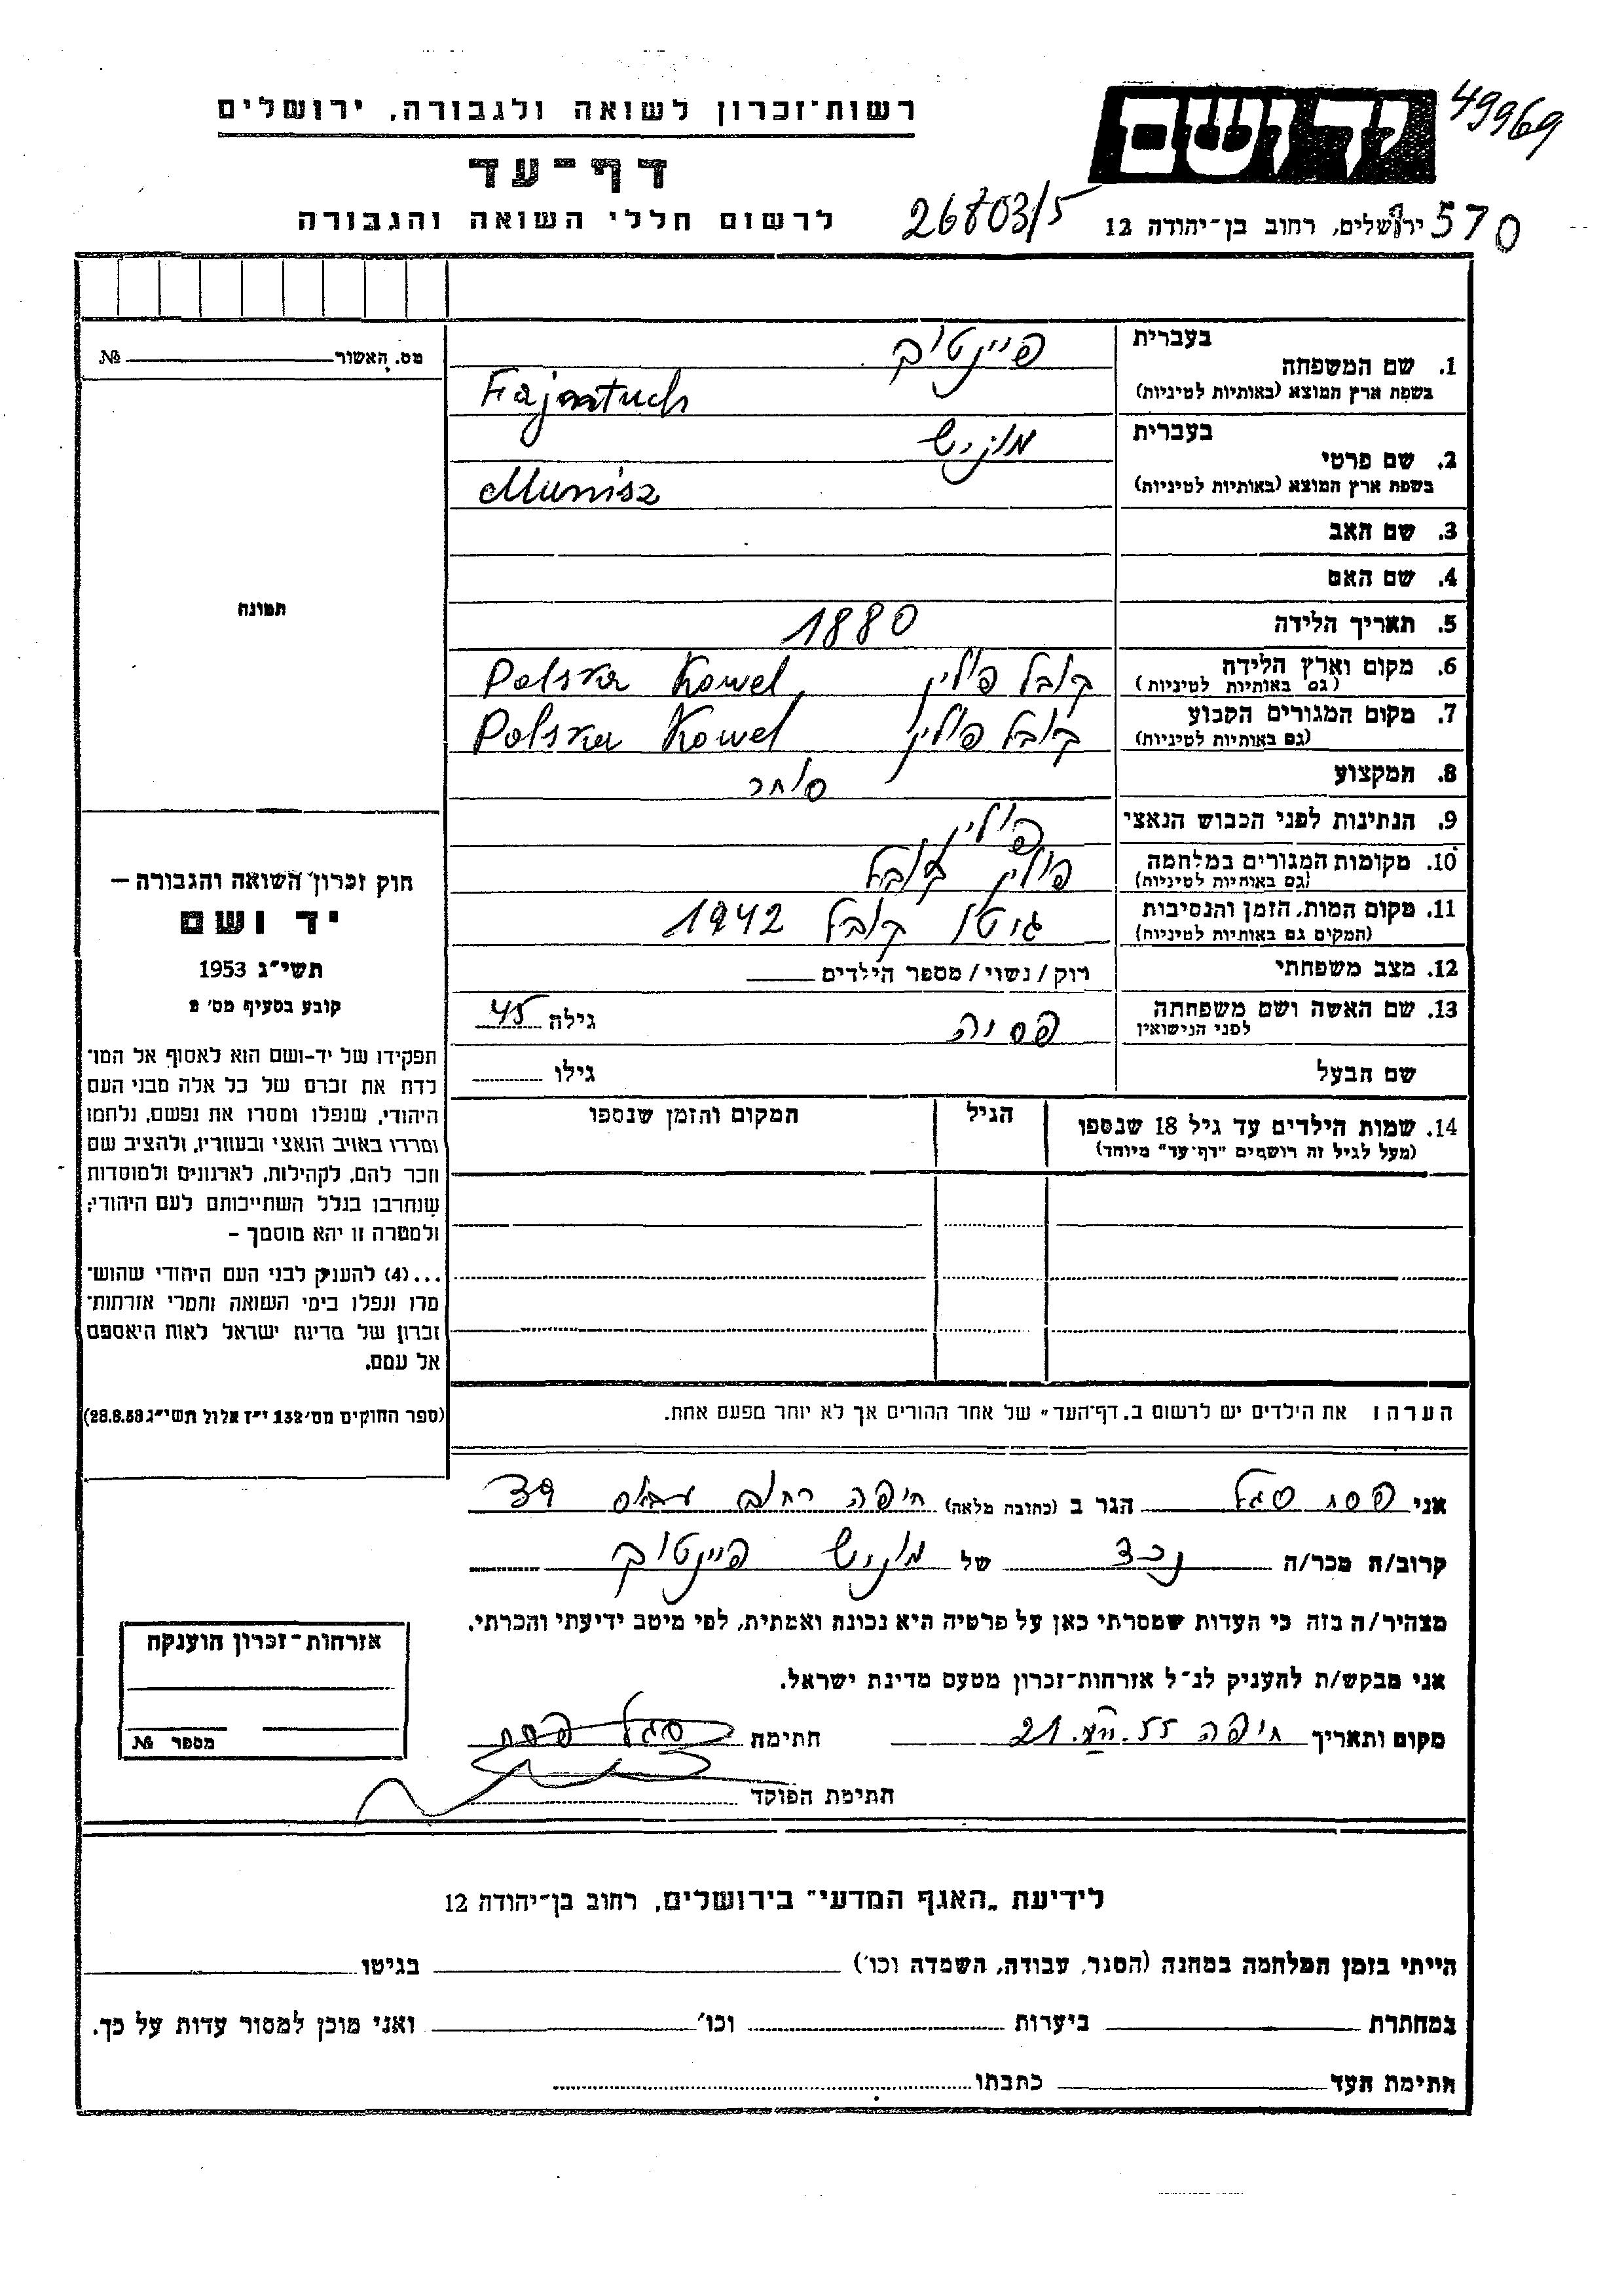 49969
רשות־זכרון לשואה ולגבורה, ירושלים
יד ושם
דף־עד
לרשום חללי השואה והגבורה
26803/5
ירושלים, רחוב בן־יהודה 12
570
בעברית
פיינטוך
1. שם המשפחה
בשפת ארץ המוצא (באותיות לטיניות)
Fajntuch
בעברית
מוניש
2. שם פרטי
בשפת ארץ המוצא (באותיות לטיניות)
Munisz
3. שם האב
4. שם האם
5. תאריך הלידה 1880
6. מקום וארץ הלידה קובל פולין Polska Kowel
(גם באותיות לטיניות)
7. מקום המגורים הקבוע קובל פולין Polska Kowel
(גם באותיות לטיניות)
8. המקצוע סוחר
9. הנתינות לפני הכבוש הנאצי פולין
10. מקומות המגורים במלחמה פולין קובל
(גם באותיות לטיניות)
11. מקום המות, הזמן והנסיבות גיטו קובל 1942
(המקום גם באותיות לטיניות)
12. מצב משפחתי רוק/נשוי/מספר הילדים
13. שם האשה ושם משפחתה פסיה גילה 45
לפני הנישואין
שם הבעל גילו
14. שמות הילדים עד גיל 18 שנספו הגיל המקום והזמן שנספו
(מעל לגיל זה רושמים "דף־עד" מיוחד)
הערה: את הילדים יש לרשום ב„דף־העד" של אחד ההורים אך לא יותר מפעם אחת.
מס. האשור №
תמונה
חוק זכרון השואה והגבורה —
יד ושם
תשי"ג 1953
קובע בסעיף מס' 2
תפקידו של יד-ושם הוא לאסוף אל המו־
לדת את זכרם של כל אלה מבני העם
היהודי, שנפלו ומסרו את נפשם, נלחמו
ומרדו באויב הנאצי ובעוזריו, ולהציב שם
וזכר להם, לקהילות, לארגונים ולמוסדות
שנחרבו בגלל השתייכותם לעם היהודי;
ולמטרה זו יהא מוסמך -
...(4) להעניק לבני העם היהודי שהוש־
מדו ונפלו בימי השואה והמרי אזרחות־
זכרון של מדינת ישראל לאות היאספם
אל עמם.
(ספר החוקים מס' 132 י"ז אלול תשי"ג 28.8.53)
אני פסח סגל הגר ב (כתובת מלאה) חיפה רחוב עבאס 39
קרוב/ה מכר/ה נכד של מוניש פיינטוך
מצהיר/ה בזה כי העדות שמסרתי כאן על פרטיה היא נכונה ואמתית, לפי מיטב ידיעתי והכרתי.
אני מבקש/ת להעניק לנ"ל אזרחות־זכרון מטעם מדינת ישראל.
מקום ותאריך חיפה 21.VII.55 חתימה סגל פסח
חתימת הפוקד
אזרחות־זכרון הוענקה
מספר №
לידיעת „האגף המדעי" בירושלים, רחוב בן־יהודה 12
הייתי בזמן המלחמה במחנה (הסגר, עבודה, השמדה וכו') בגיטו
במחתרת ביערות וכו' ואני מוכן למסור עדות על כך.
חתימת העד כתבתו